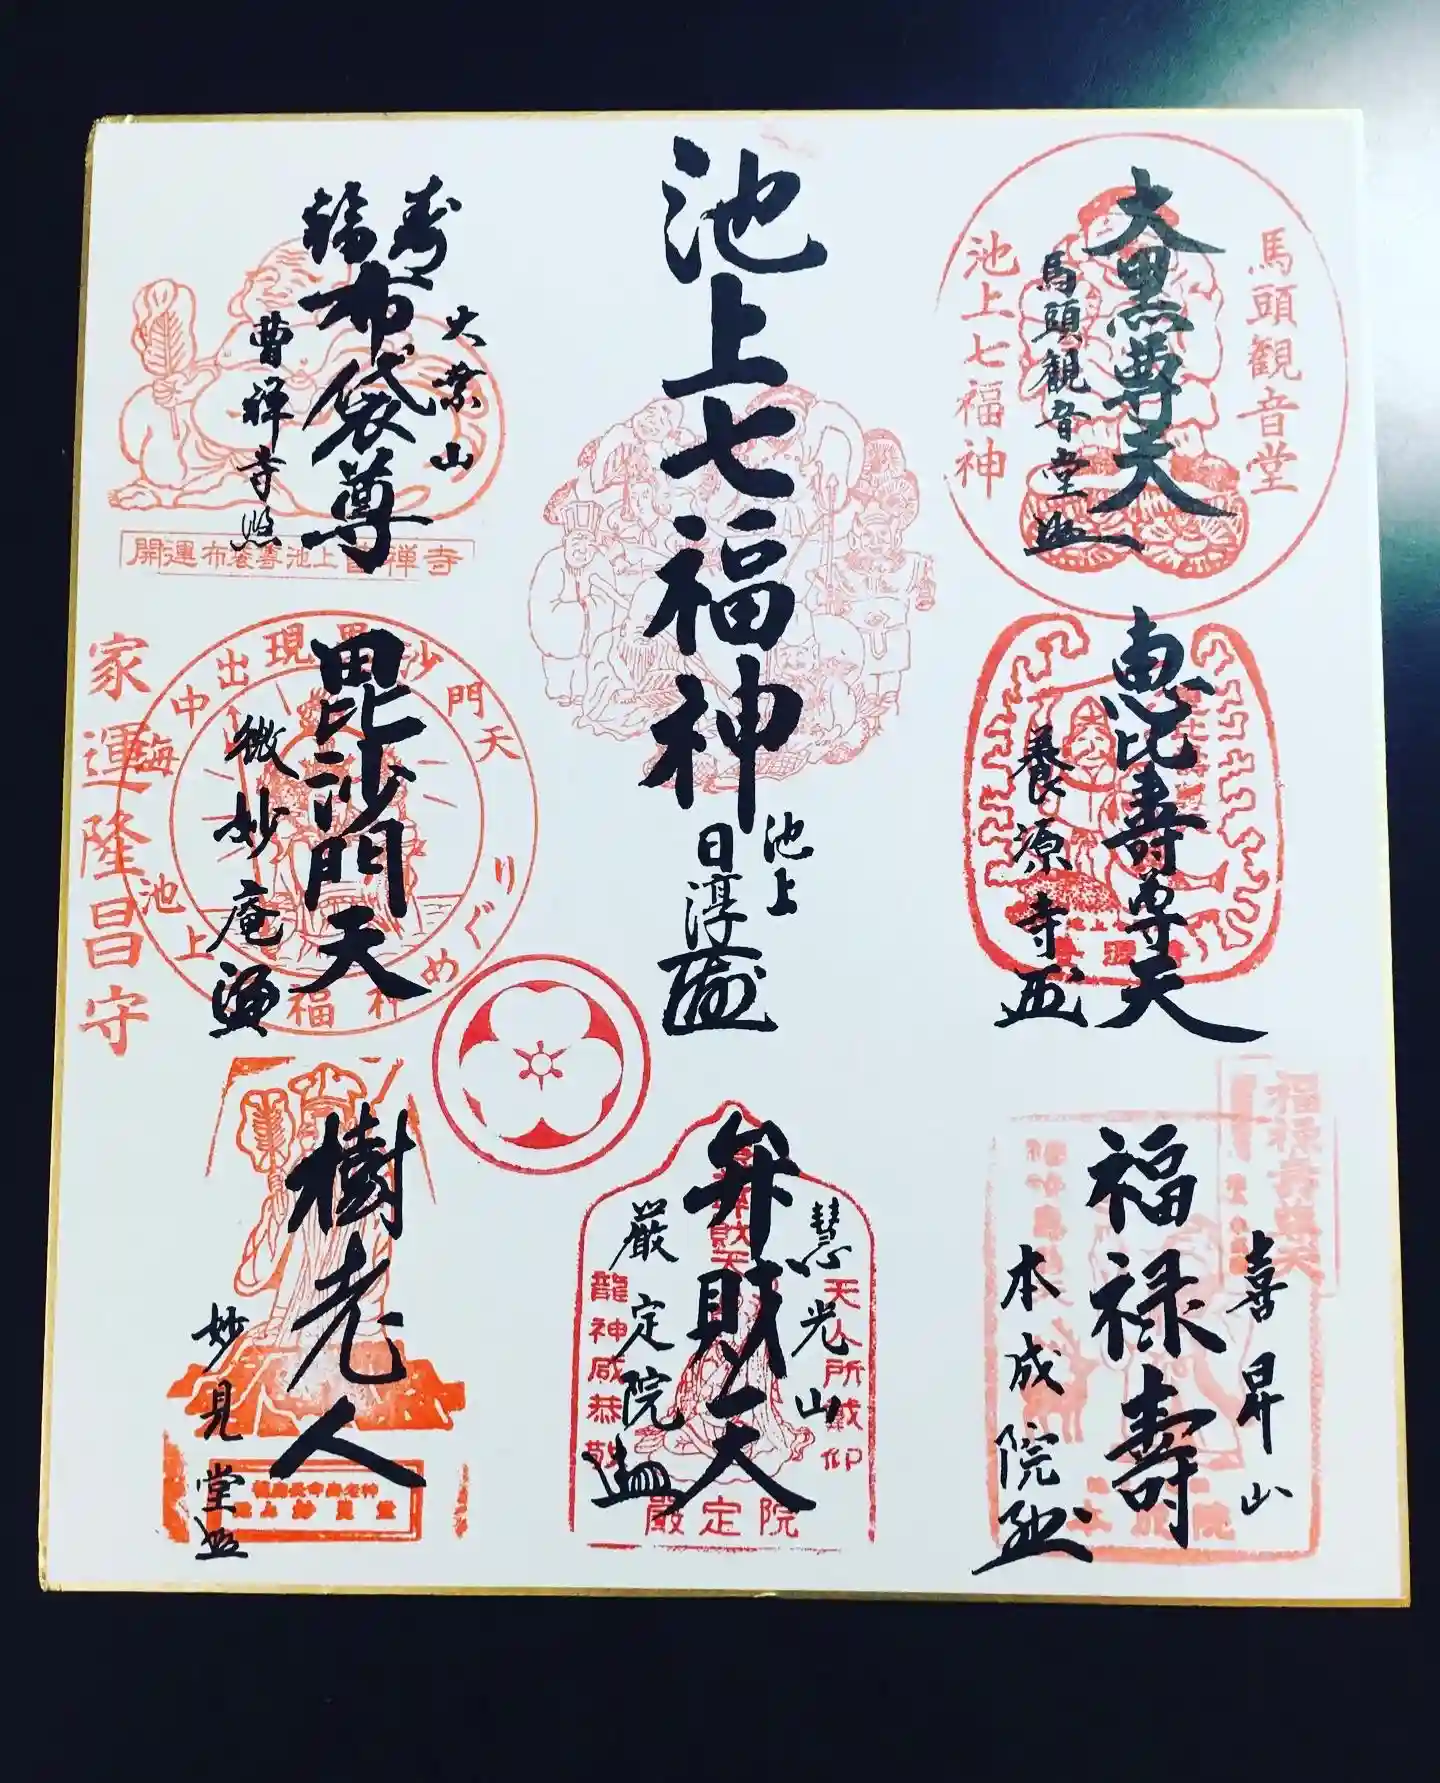 池上七福神
池上
日淳
大黒尊天
馬頭観音堂
馬頭観音堂
池上七福神
恵比寿尊天
養源寺
喜昇山
福禄寿
本成院
慧光山
弁財天
厳定院
天人所戴仰
龍神咸恭敬
厳定院
寿福
大黒山
布袋尊
曹禅寺
開運布袋尊池上曹禅寺
毘沙門天
微妙庵
海中出現毘沙門天
池上七福神めぐり
家運隆昌守
樹老人
妙見堂